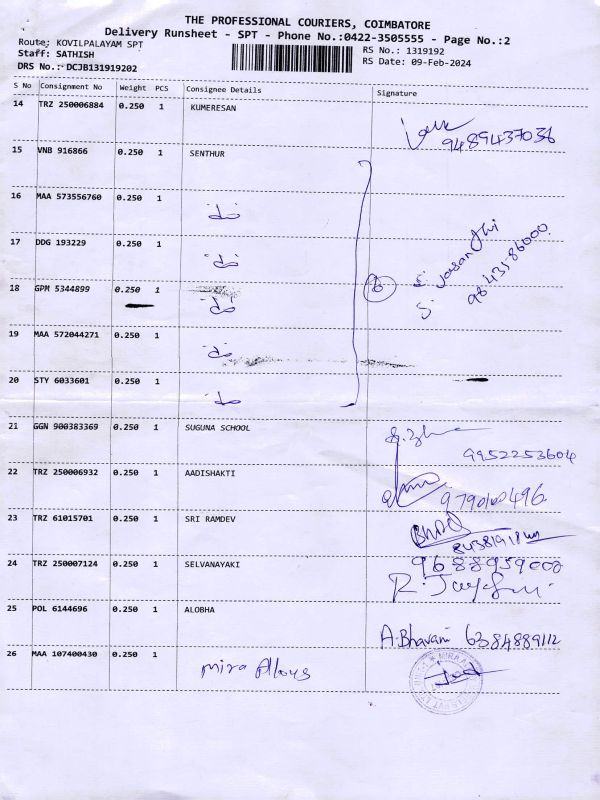 THE PROFESSIONAL COURIERS, COIMBATORE
Delivery Runsheet - SPT - Phone No.:0422-3505555 - Page No.:2
Route: KOVILPALAYAM SPT
RS No.: 1319192
Staff: SATHISH
RS Date: 09-Feb-2024
DRS No.: DCJB131919202
S No Consignment No Weight PCS Consignee Details Signature
14 TRZ 250006884 0.250 1 KUMERESAN
9489437036
15 VNB 916866 0.250 1 SENTHUR
16 MAA 573556760 0.250 1
17 DDG 193229 0.250 1
18 GPM 5344899 0.250 1
6
S. Vasanthi
98431-86000
19 MAA 572044271 0.250 1
20 STY 6033601 0.250 1
21 GGN 900383369 0.250 1 SUGUNA SCHOOL
9952253604
22 TRZ 250006932 0.250 1 AADISHAKTI
9790100496
23 TRZ 61015701 0.250 1 SRI RAMDEV
24 TRZ 250007124 0.250 1 SELVANAYAKI
9688959008
25 POL 6144696 0.250 1 ALOBHA
A.Bhavani 6384889112
26 MAA 107400430 0.250 1 Mira Alloys